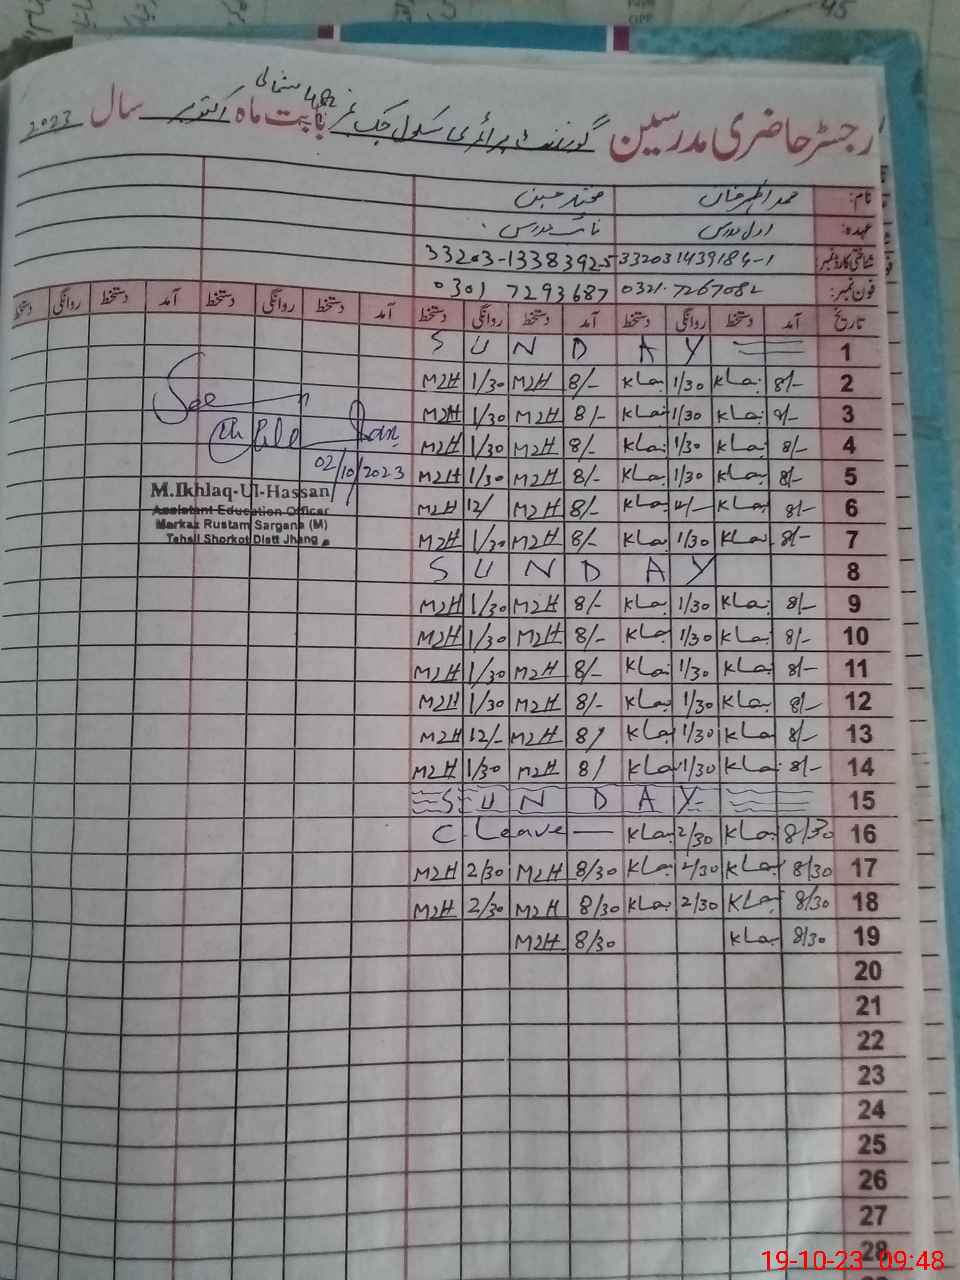 رجسٹر حاضری مدرسین گورنمنٹ پرائمری سکول چک نمبر 482 شمالی بابت ماہ اکتوبر سال 2023
نام: محمد اظہر خان
عہدہ: اول مدرس نائب مدرس
شناختی کارڈ نمبر: 332031439184-1 33203-1338392-5
فون نمبر: 0321-7267082 0301 7293687
تاریخ آمد دستخط روانگی دستخط آمد دستخط روانگی دستخط آمد دستخط روانگی دستخط آمد دستخط روانگی دستخط
1 S U N D A Y
2 8/- 1/30 8/- M2H 1/30 M2H
3 8/- 1/30 8/- M2H 1/30 M2H
4 8/- 1/30 8/- M2H 1/30 M2H
5 8/- 1/30 8/- M2H 1/30 M2H
6 8/- 8/- M2H 12/ M2H
7 8/- 1/30 8/- M2H 1/30 M2H
8 S U N D A Y
9 8/- 1/30 8/- M2H 1/30 M2H
10 8/- 1/30 8/- M2H 1/30 M2H
11 8/- 1/30 8/- M2H 1/30 M2H
12 8/- 1/30 8/- M2H 1/30 M2H
13 8/- 1/30 8/ M2H 12/- M2H
14 8/- 1/30 8/ M2H 1/30 M2H
15 S U N D A Y
16 8/30 2/30 C Leave
17 8/30 2/30 8/30 M2H 2/30 M2H
18 8/30 2/30 8/30 M2H 2/30 M2H
19 8/30 8/30 M2H
20
21
22
23
24
25
26
27
28
02/10/2023
M.Ikhlaq-Ul-Hassan
Assistant Education Officer
Markaz Rustam Sargana (M)
Tehsil Shorkot Distt Jhang
19-10-23 09:48